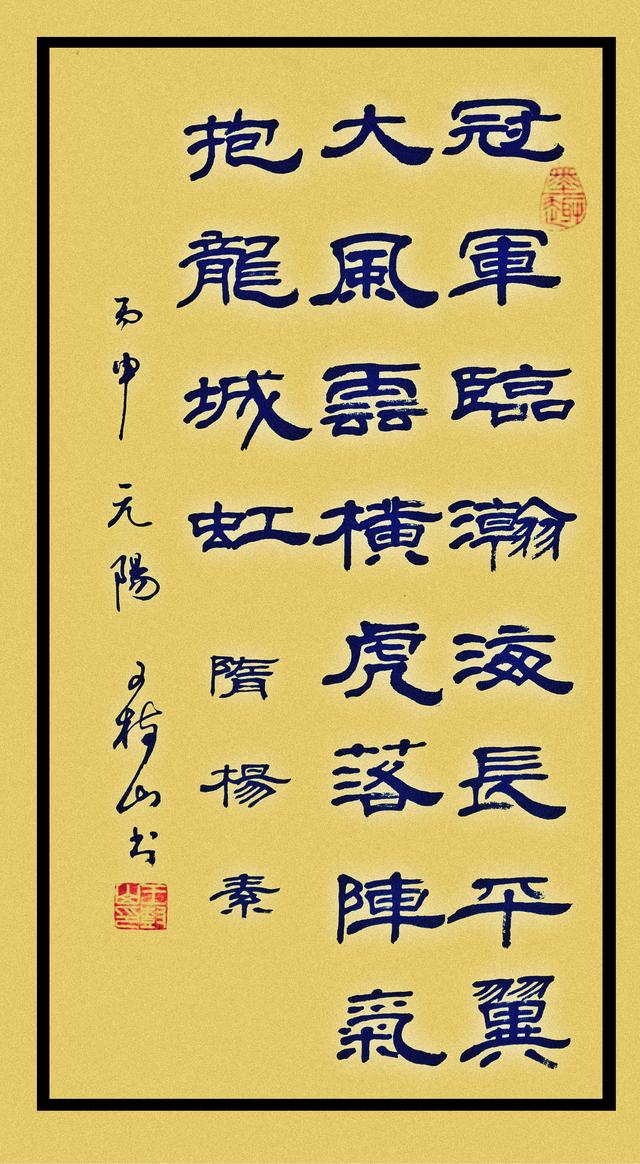 冠軍臨瀚海長平翼
大風雲橫虎落陣氣
抱龍城虹
隋楊素
丙申元陽
山书